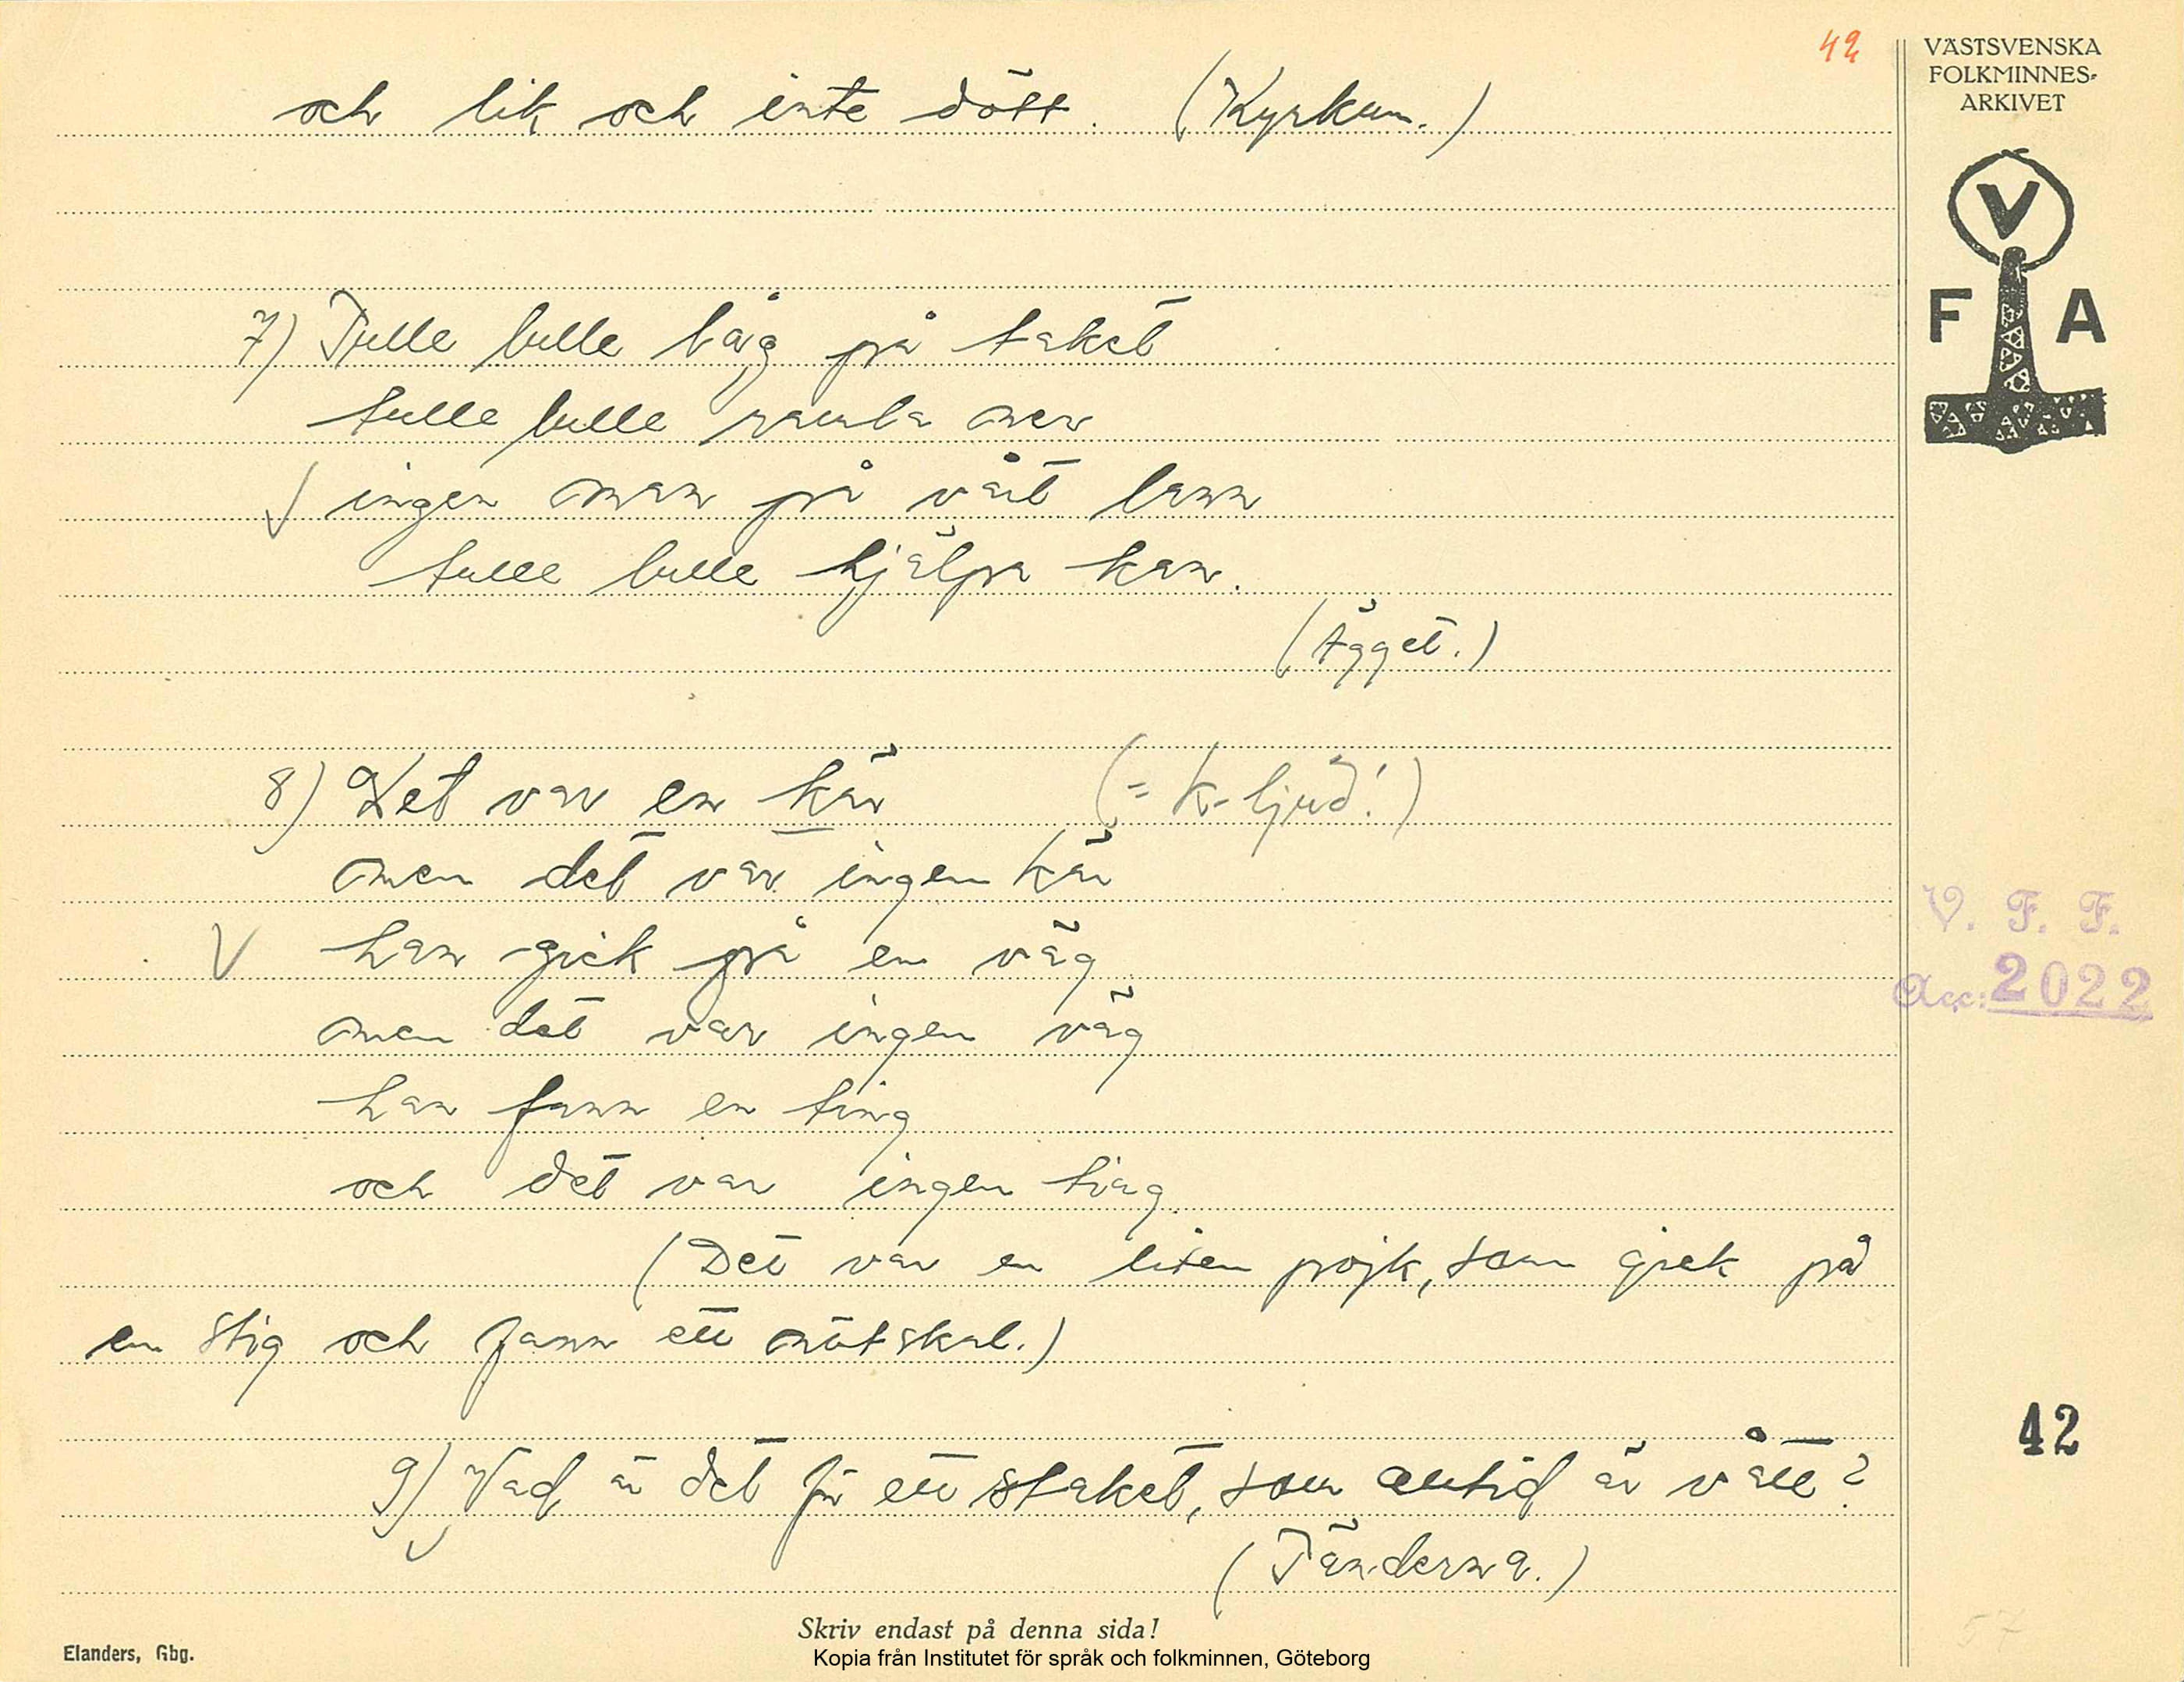 42
VÄSTSVENSKA
FOLKMINNES-
ARKIVET
V
F A
och lik och inte dött. (Kyrkan.)
7) Tulle lulle låg på taket
tulle lulle ramla ner
√ ingen man på vårt lann
tulle lulle hjälpa kan.
(Ägget.)
8) Det var en kär (= k-ljud!)
men det var ingen kär
V han gick på en väg
men det var ingen väg
han fann en ting
och det var ingen ting.
(Det var en liten pojk, som gick på
en stig och fann ett nötskal.)
9) Vad är det för ett staket, som alltid är vått?
(Tänderna.)
V. F. F.
Acc: 2022
42
57
Skriv endast på denna sida!
Elanders, Gbg.
Kopia från Institutet för språk och folkminnen, Göteborg